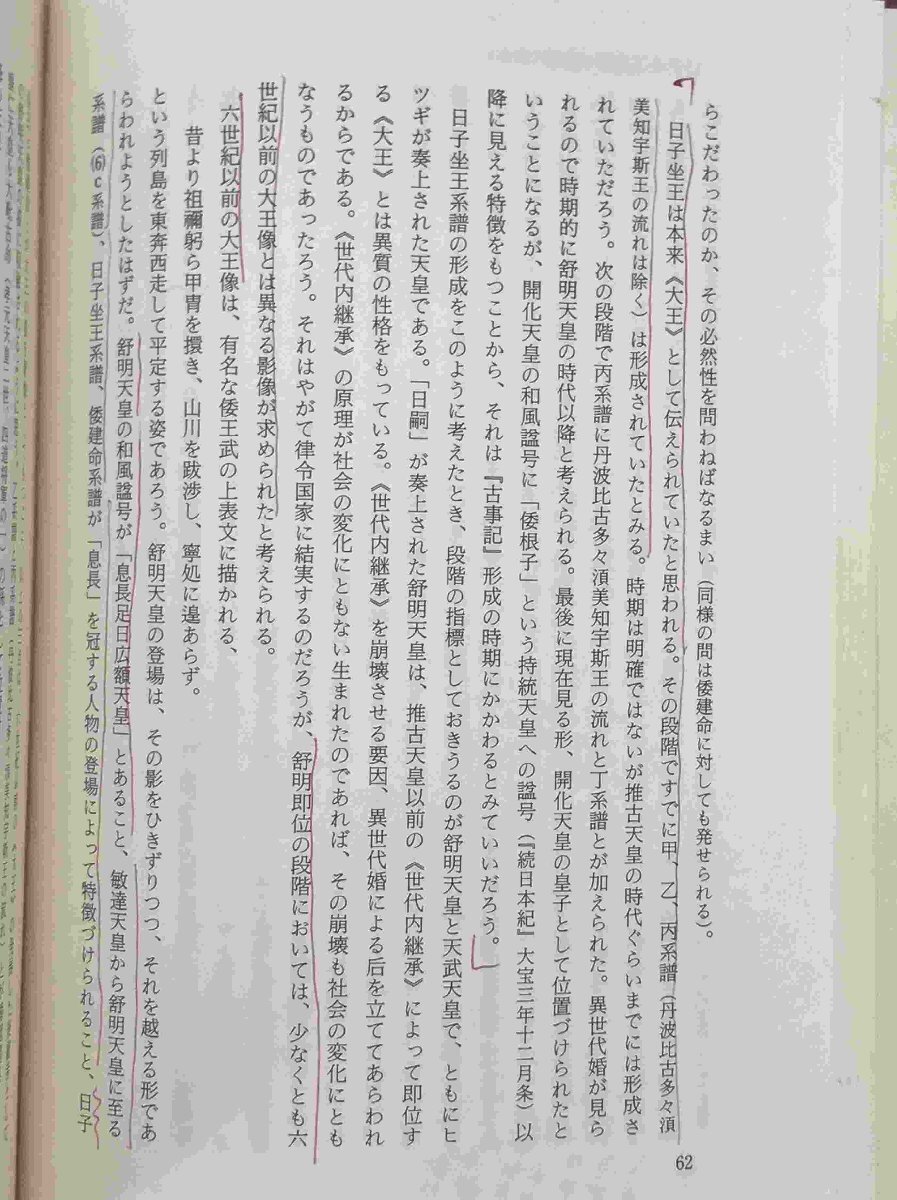 らこだわったのか、その必然性を問わねばなるまい（同様の問は倭建命に対しても発せられる）。
日子坐王は本来《大王》として伝えられていたと思われる。その段階ですでに甲、乙、丙系譜（丹波比古多々湏
美知宇斯王の流れは除く）は形成されていたとみる。時期は明確ではないが推古天皇の時代ぐらいまでには形成さ
れていただろう。次の段階で丙系譜に丹波比古多々湏美知宇斯王の流れと丁系譜とが加えられた。異世代婚が見ら
れるので時期的に舒明天皇の時代以降と考えられる。最後に現在見る形、開化天皇の皇子として位置づけられたと
いうことになるが、開化天皇の和風諡号に「倭根子」という持統天皇への諡号（『続日本紀』大宝三年十二月条）以
降に見える特徴をもつことから、それは『古事記』形成の時期にかかわるとみていいだろう。
日子坐王系譜の形成をこのように考えたとき、段階の指標としておきうるのが舒明天皇と天武天皇で、ともにヒ
ツギが奏上された天皇である。「日嗣」が奏上された舒明天皇は、推古天皇以前の《世代内継承》によって即位す
る《大王》とは異質の性格をもっている。《世代内継承》を崩壊させる要因、異世代婚による后を立ててあらわれ
るからである。《世代内継承》の原理が社会の変化にともない生まれたのであれば、その崩壊も社会の変化にとも
なうものであったろう。それはやがて律令国家に結実するのだろうが、舒明即位の段階においては、少なくとも六
世紀以前の大王像とは異なる影像が求められたと考えられる。
六世紀以前の大王像は、有名な倭王武の上表文に描かれる、
昔より祖禰躬ら甲冑を擐き、山川を跋渉し、寧処に遑あらず。
という列島を東奔西走して平定する姿であろう。舒明天皇の登場は、その影をひきずりつつ、それを越える形であ
らわれようとしたはずだ。舒明天皇の和風諡号が「息長足日広額天皇」とあること、敏達天皇から舒明天皇に至る
系譜（⑹c系譜）、日子坐王系譜、倭建命系譜が「息長」を冠する人物の登場によって特徴づけられること、日子
62